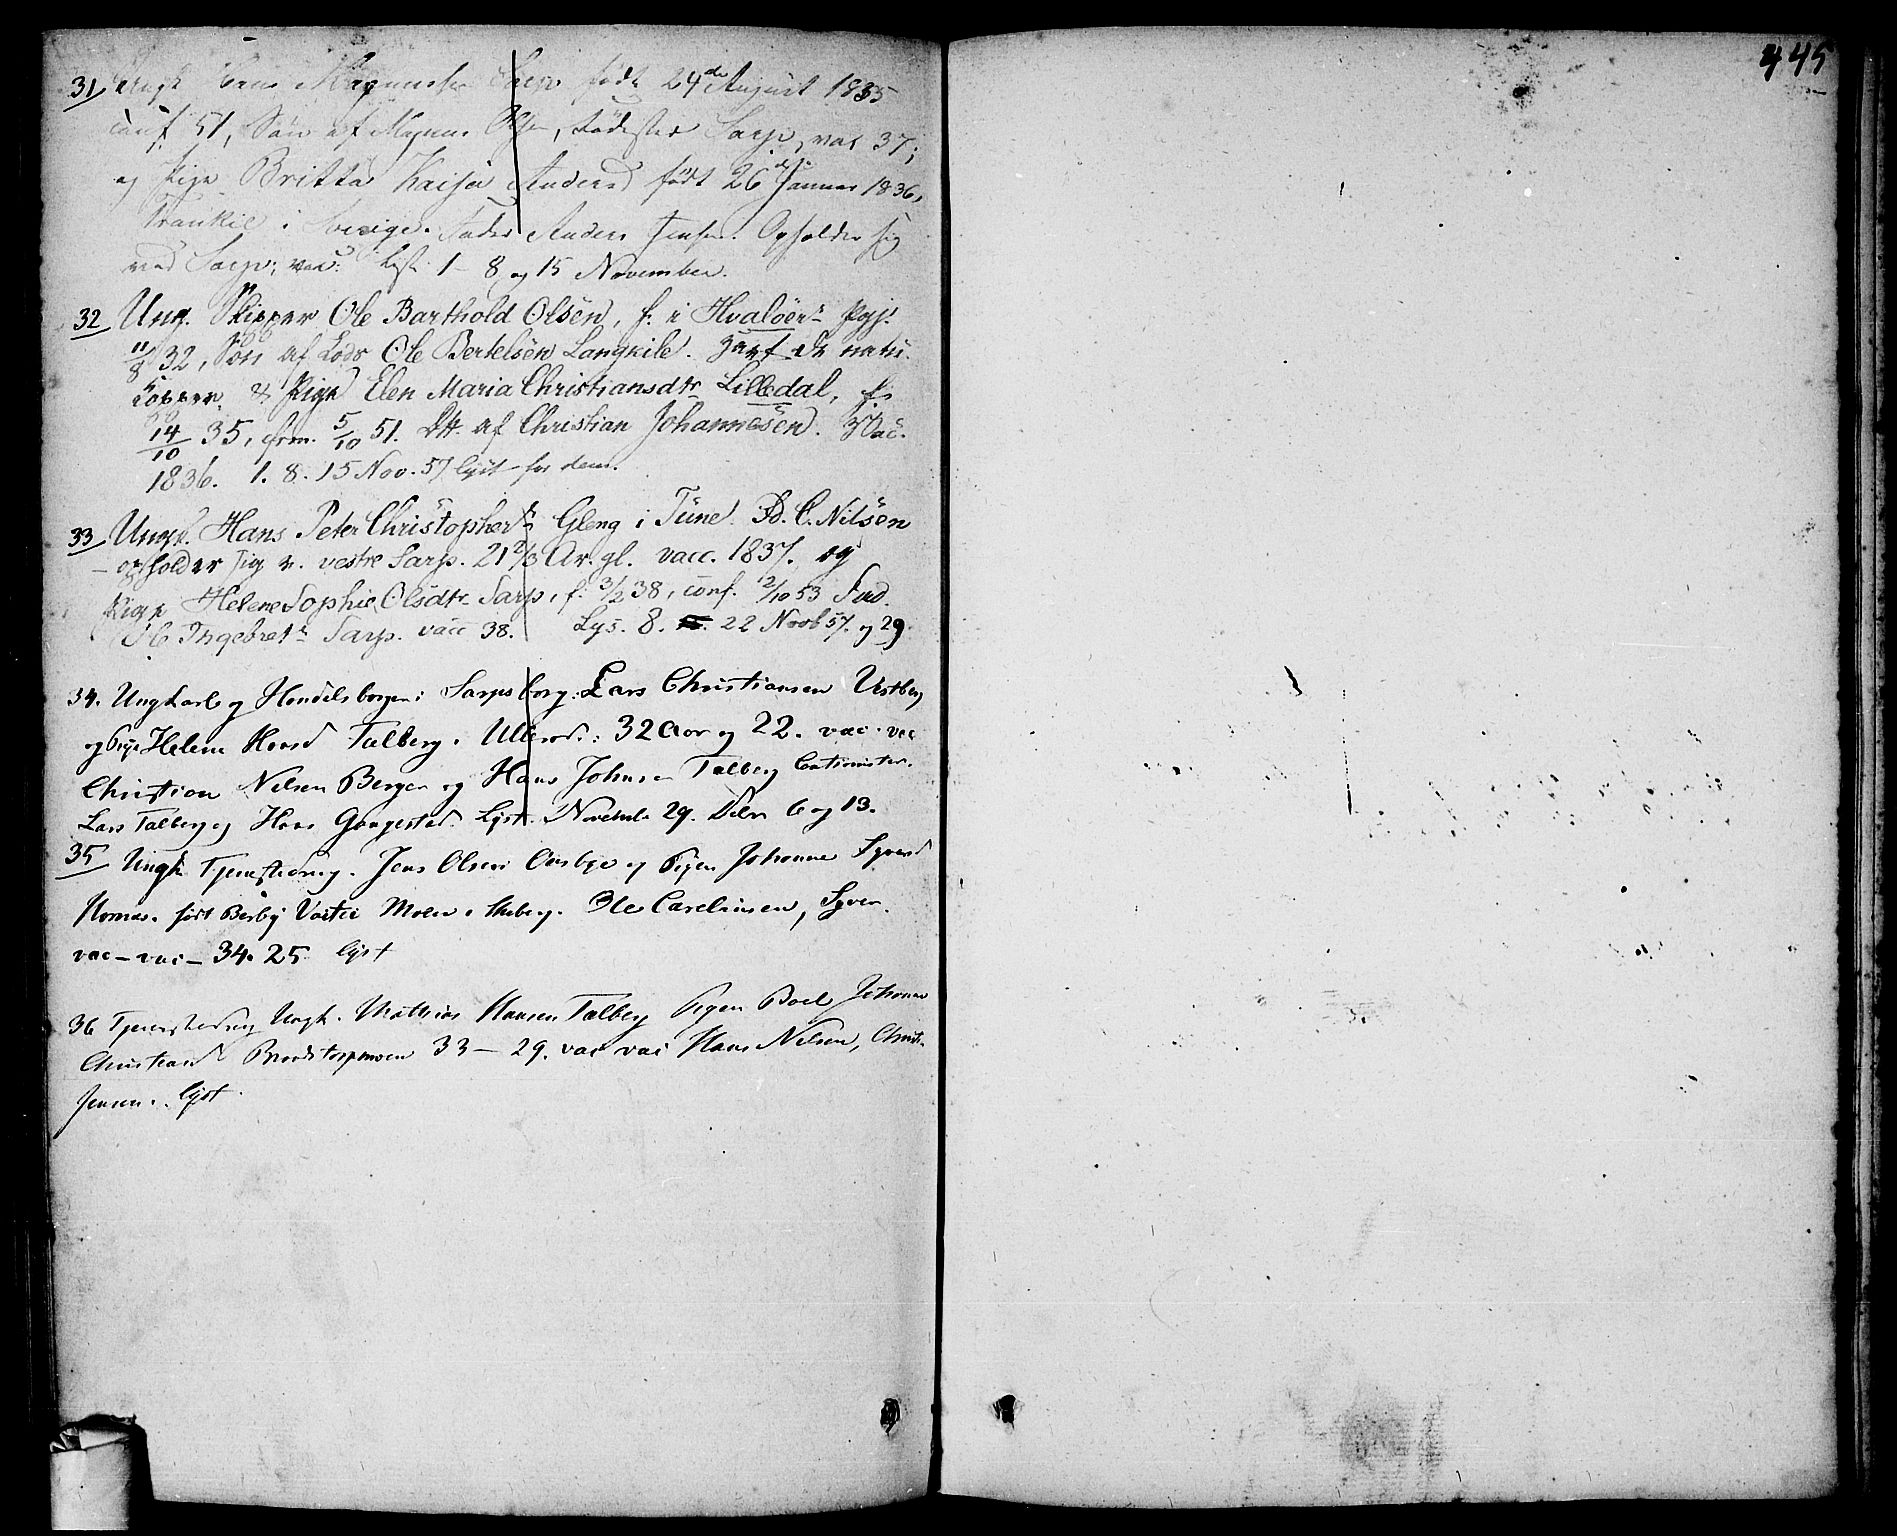 445
31 Ungk Hans Magnussen Sarp födt 24de August 1835
conf 51, Sön af Magnus Olsen, Födested Sarp, vac 37;
og Pige Britta Kaisa Andersd födt 26de Januar 1836,
Trankil i Sverige. Fader Anders Jensen. Opholder sig
ved Sarp; vac: Lyst 1 - 8 og 15 November.
32 Ung. Skipper Ole Barthold Olsen, f. i Hvalöers Pgj.
11/8 32, Sön af Lods Ole Bertelsen Langkile. Havt de natu.
Kopper. & Pige Elen Maria Christiansdtr Lilledal, f.
14/10 35, cfrm. 5/10 51. Dtr. af Christian Johannesen. Vac.
1836. 1. 8. 15 Nov. 57 lyst for dem.
33 Ungk. Hans Peter Christophers Gleng i Tune. Fd. C. Nilsen
opholder sig v. vestre Sarp. 21 2/3 Ar. gl. vacc. 1837. og
Pige Helene Sophie Olsdtr Sarp, f. 3/2 38, conf. 2/10 53 Fad.
Ole Ingebrets Sarp. vacc 38. Lys. 8. 22 Novb 57. og 29.
34. Ungkarl og Handelsborger i Sarpsborg: Lars Christiansen Vestby
og Pige Helene Hansd Talberg. Ullerød: 32 Aar og 22. vac. vac
Christian Nilsen Berger og Hans Johnsen Talberg Cautionister.
Lars Talberg og Hans Gangestad. Lyst. November 29. Debr 6 og 13.
35 Ungk Tjenestedreng. Jens Olsen og Pigen Johanne Syversd
födt Berby Moen i Skeberg. Ole Carelinsen, Syver
vac - vac - 34. 25 lyst
36 Tjenestedreng Ungk. Mathias Hansen Talberg Pigen Boel Johanne
Christiansd 33 - 29. vac vac Hans Nilsen, Christ.
Jensen. lyst.